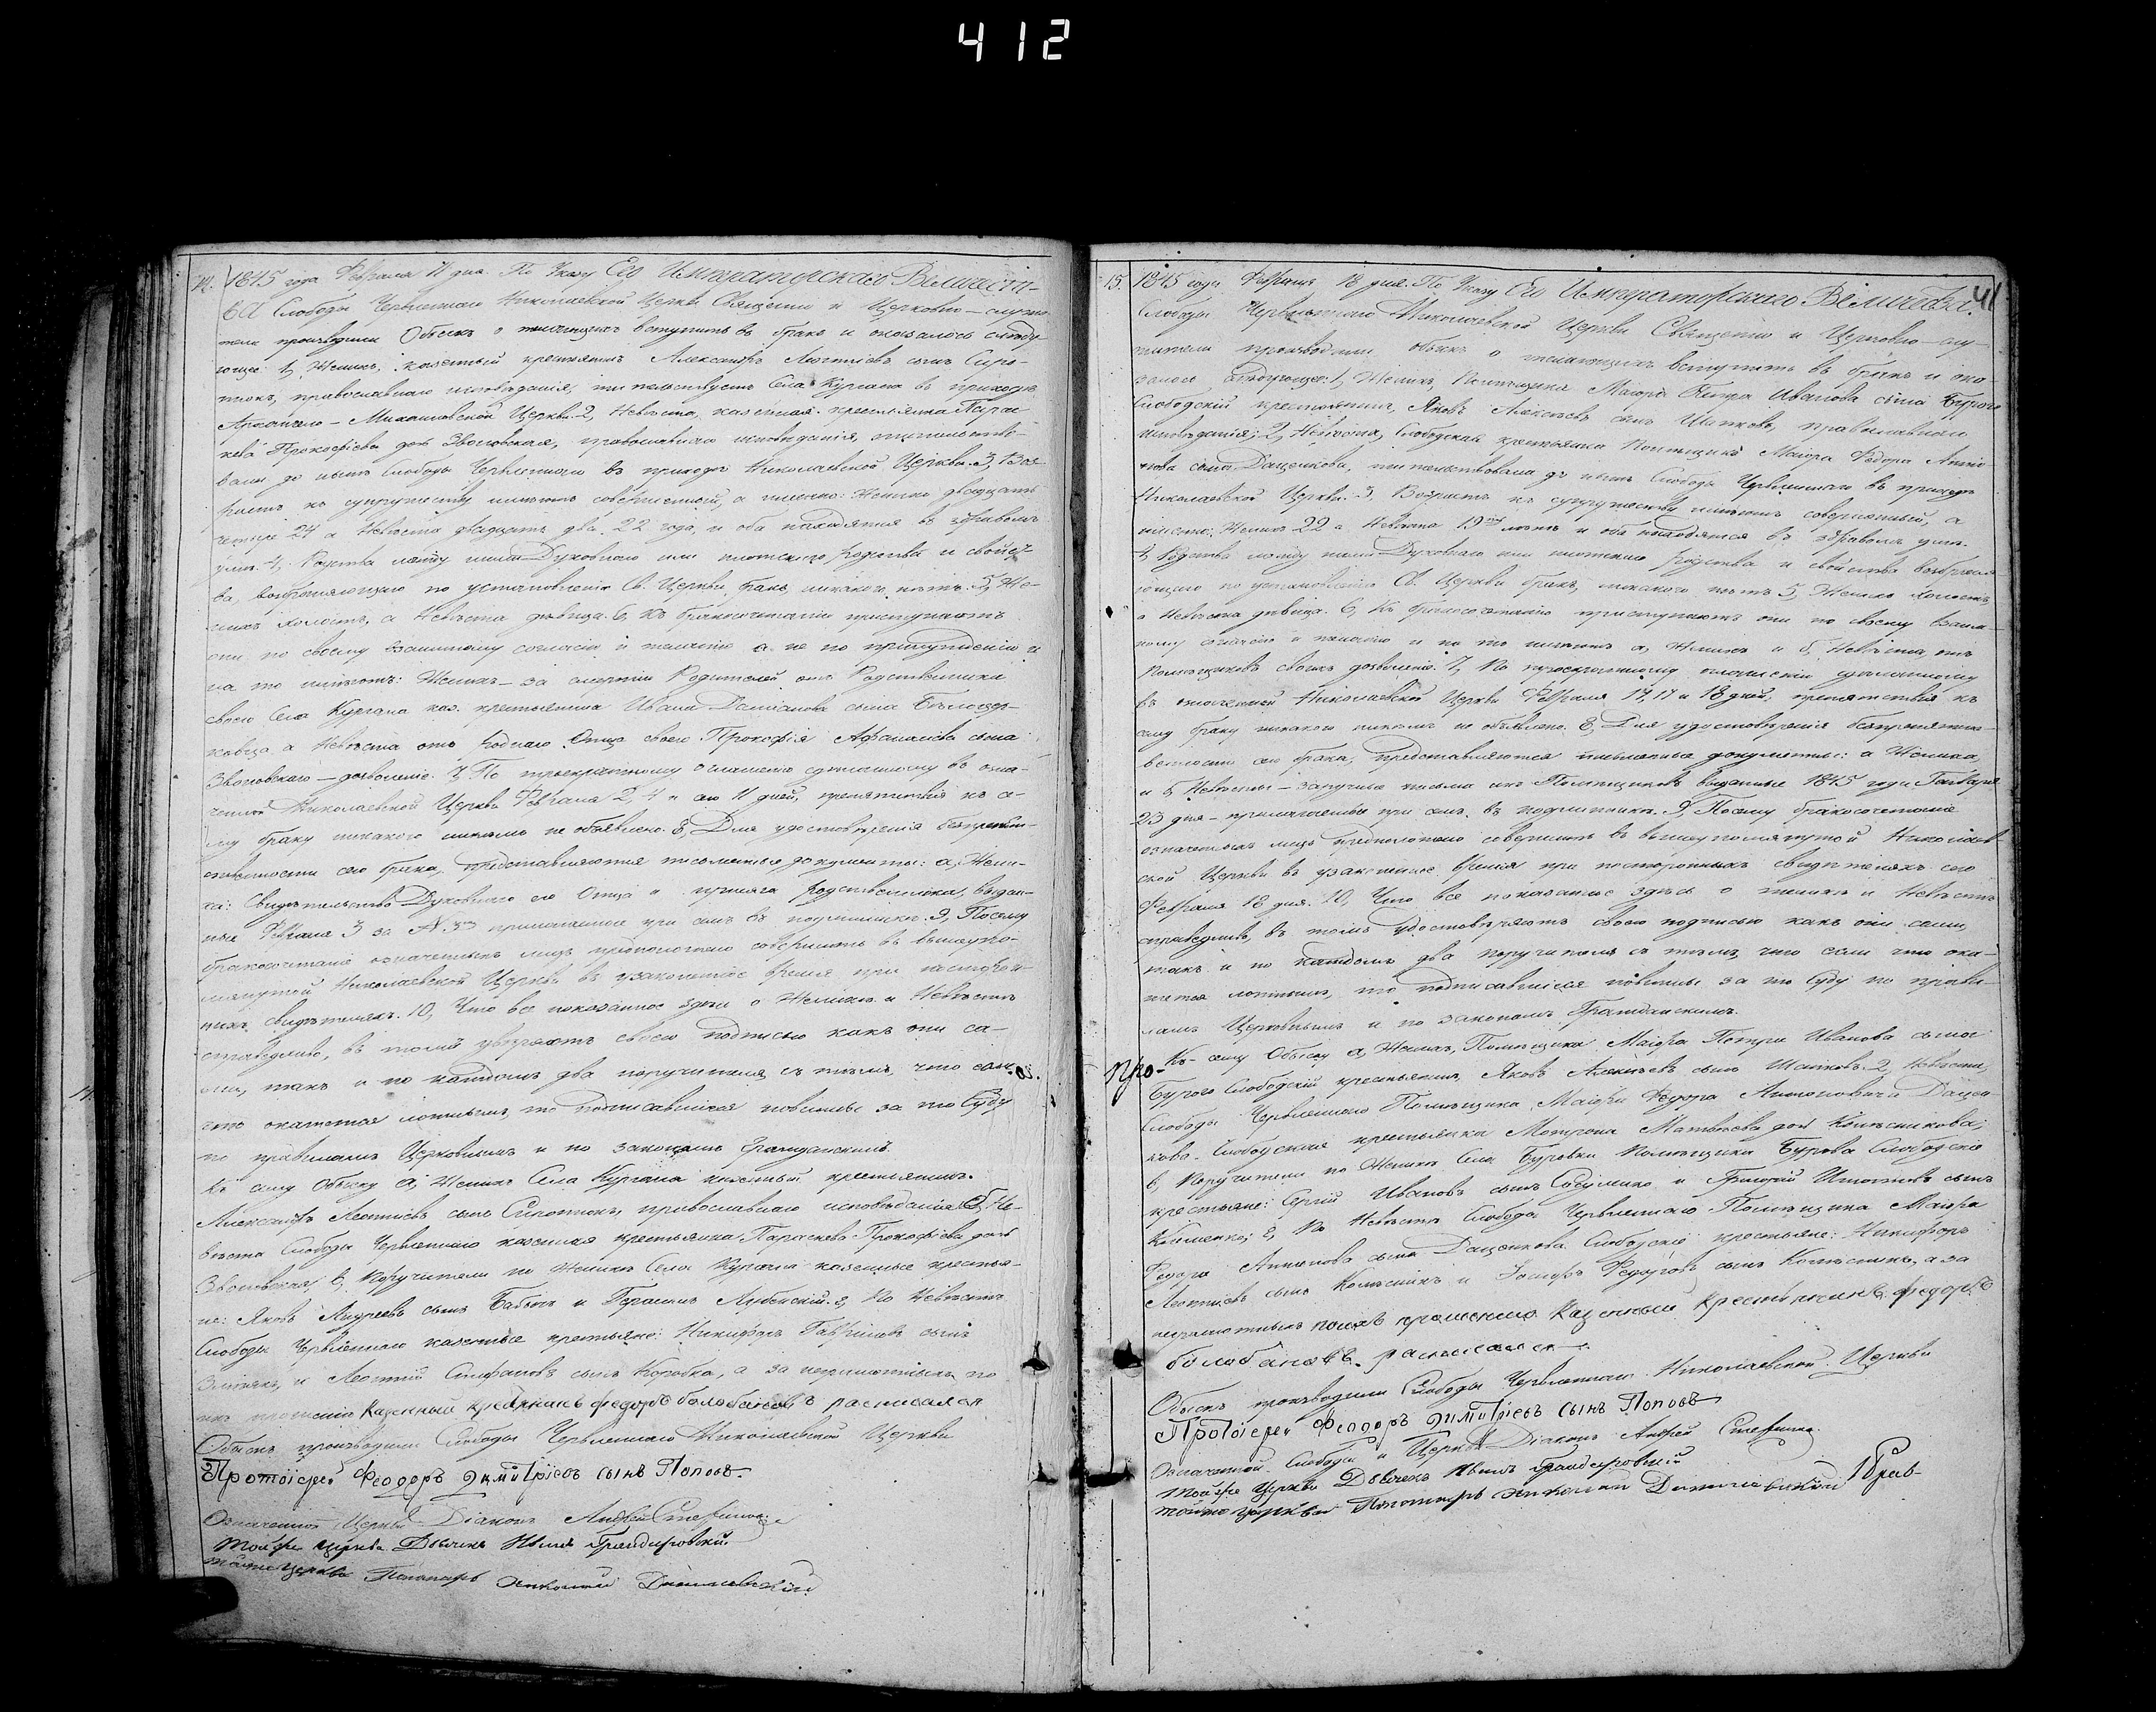 412
41
14. 1845 года Февраля 11 дня. По Указу Его Императорскаго Величест-
ва Слободы Червленнаго Николаевской Церкви Священно и Церковно-служи
тели производили Обыскъ о желающихъ вступить въ бракъ и оказалось слѣду
ющее: 1, Женихъ, казенный крестьянинъ Александръ Леонтіевъ сынъ
православнаго исповѣданія, жительствуетъ Села Кургана въ приходѣ
Архангело-Михаиловской Церкви. 2, Невѣста, казенная крестьянка Парас-
кева Прокофіева дочь Звоновская, православнаго исповѣданія, жительство-
вала до нынѣ Слободы Червленнаго въ приходѣ Николаевской Церкви. 3, Воз-
растъ къ супружеству имѣютъ совершенный, а именно: Женихъ двадцать
четыре 24 а Невѣста двадцать два 22 года, и оба находятся въ здравомъ
умѣ. 4, Родства между ними Духовнаго или плотскаго родства и свойст-
ва, возбраняющаго по установленію Св. Церкви бракъ, никакого нѣтъ. 5, Же-
нихъ холостъ, а Невѣста дѣвица. 6, Къ бракосочетанію приступаютъ
они по своему взаимному согласію и желанію а не по принужденію и
на то имѣютъ: Женихъ – за смертію Родителей отъ Родственника
своего Села Кургана каз. крестьянина Ивана Даміанова сына
а Невѣста отъ роднаго Отца своего Прокофія Афанасіева сына
Звоновскаго – дозволеніе. 7, По троекратному оглашенію сдѣланному въ озна-
ченной Николаевской Церкви Февраля 2, 4 и сего 11 дней, препятствія къ се-
му браку никакого никѣмъ не объявлено. 8, Для удостовѣренія безпрепят-
ственности сего брака, представляются письменные документы: а, Жени-
ха: Свидѣтельство Духовнаго его Отца и присяга родственника, выдан-
ныя Февраля 3 за № 3 прилагаемое при семъ въ подлинникѣ. 9, Посему
бракосочетаніе означенныхъ лицъ предположено совершить въ вышеупо-
мянутой Николаевской Церкви въ узаконенное время при посторон-
нихъ свидѣтеляхъ. 10, Что все показанное здѣсь о Женихѣ и Невѣстѣ
справедливо, въ томъ увѣряютъ своею подписью какъ они са-
ми, такъ и по каждомъ два поручителя, съ тѣмъ, что если
что окажется ложнымъ, то подписавшіеся повинны за то Суду
по правиламъ Церковнымъ и по законамъ Гражданскимъ.
Къ сему Обыску а, Женихъ Села Кургана казенный крестьянинъ
Александръ Леонтіевъ сынъ православнаго исповѣданія б, Не-
вѣста Слободы Червленнаго казенная крестьянка Параскева Прокофіева дочь
Звоновская, в, Поручители по Женихѣ Села Кургана казенные крестья-
не: Яковъ Андреевъ сынъ и Герасимъ По Невѣстѣ
Слободы Червленнаго казенные крестьяне: Никифоръ Гавриловъ сынъ
и Леонтій Стефановъ сынъ Коробка, а за неграмотныхъ по
ихъ прошенію казенный крестьянинъ федоръ болобановъ расписался
Обыскъ производили Слободы Червленнаго Николаевской Церкви
Протоіерей Феодоръ Димитріевъ сынъ Поповъ
Означенной Церкви Діаконъ Андрей
Тойже церкви Дьячекъ Иванъ
Тойже церкви Пономарь
15. 1845 года Февраля 18 дня. По Указу Его Императорскаго Величества.
Слободы Червленнаго Николаевской Церкви Священно и Церковно-слу-
жители производили обыскъ о желающихъ вступить въ бракъ и ока-
залось слѣдующее: 1, Женихъ, Помѣщика Маіора Петра Иванова сына Бурого
Слободскій крестьянинъ, Яковъ Алексѣевъ сынъ Шапковъ, православнаго
исповѣданія; 2, Невѣста, Слободская крестьянка Помѣщика Маіора Федора Анто
нова сына Даценкова, жительствовала до нынѣ Слободы Червленнаго въ приходѣ
Николаевской Церкви. 3, Возрастъ къ супружеству имѣютъ совершенный, а
именно: Женихъ 22 а Невѣста 19 лѣтъ и оба находятся въ здравомъ умѣ.
4, Родства между ними Духовнаго или плотскаго родства и свойства возбраня
ющаго по установленію Св. Церкви бракъ, никакого нѣтъ 5, Женихъ холостъ,
а Невѣста дѣвица. 6, Къ бракосочетанію приступаютъ они по своему взаим-
ному согласію и желанію и на то имѣютъ а, Женихъ и б, Невѣста, отъ
Помѣщиковъ своихъ дозволеніе. 7, По троекратному оглашенію сдѣланному
въ означенной Николаевской Церкви Февраля 17 и 18 дней, препятствія къ
сему браку никакого никѣмъ не объявлено. 8, Для удостовѣренія безпрепятст-
венности сего брака, представляются письменные документы: а Жениха
и б, Невѣсты – письма отъ Помѣщиковъ выданные 1845 года Января
23 дня – прилагаемые при семъ въ подлинникѣ. 9, Посему бракосочетаніе
означенныхъ лицъ предположено совершить въ вышеупомянутой Николаев-
ской Церкви въ узаконенное время при постороннихъ свидѣтеляхъ сего
Февраля 18 дня. 10, Что все показанное здѣсь о женихѣ и Невѣстѣ
справедливо, въ томъ удостовѣряютъ своею подписью какъ они сами,
такъ и по каждомъ два поручителя съ тѣмъ, что если что ока-
жется ложнымъ, то подписавшіеся повинны за то Суду по прави-
ламъ Церковнымъ и по законамъ Гражданскимъ.
Къ сему Обыску а, Женихъ, Помѣщика Маіора Петра Иванова сына
Бурого Слободскій крестьянинъ, Яковъ Алексѣевъ сынъ Шапковъ. 2, Невѣста,
Слободы Червленнаго Помѣщика Маіора Федора Антоновича Дацен
кова Слободская крестьянка Мотрона Матвѣева дочь
в, Поручители по Женихѣ Села Буровки Помѣщика Бурова Слободскіе
крестьяне: Сергій Ивановъ сынъ и Григорій сынъ
По Невѣстѣ Слободы Червленнаго Помѣщика Маіора
Федора Антонова сына Даценкова Слободскіе крестьяне: Никифоръ
Леонтіевъ сынъ и Іосифъ Федоровъ сынъ а за
неграмотныхъ поихъ прошенію казенный крестьянинъ федоръ
болобановъ расписался
Обыскъ производили Слободы Червленнаго Николаевской Церкви
Протоіерей Феодоръ Димитріевъ сынъ Поповъ
Означенной Слободы и Церкви Діаконъ Андрей
Тойже церкви Дьячекъ Иванъ
Тойже церкви Пономарь